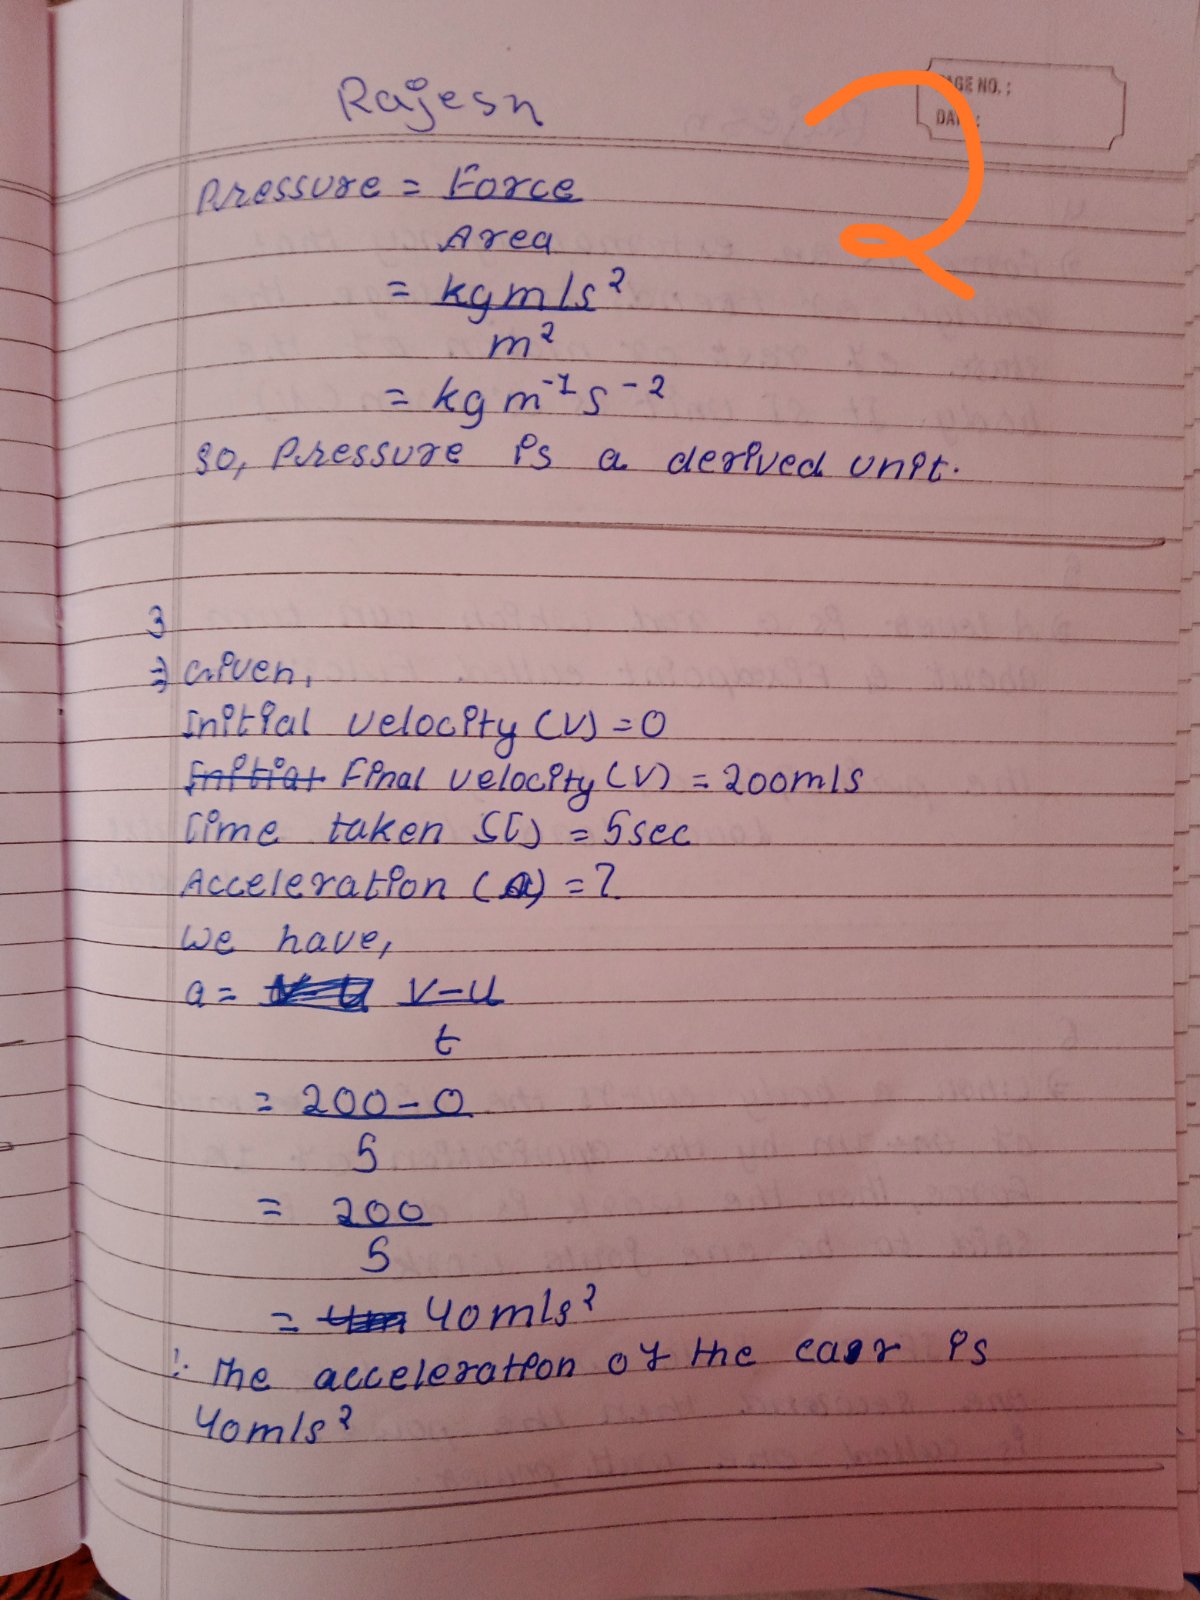 Rajesh
2
PAGE NO. :
DATE :
Pressure = Force
Area
= kgm/s²
m²
= kgm⁻¹s⁻²
so, Pressure is a derived unit.
3
⇒ Given,
Initial velocity (U) = 0
Initial Final velocity (V) = 200m/s
Time taken (T) = 5sec
Acceleration (a) = ?
We have,
a = v-u
t
= 200-0
5
= 200
5
= 40m/s²
∴ The acceleration of the car is
40m/s²